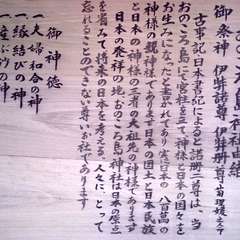 ころ島神社由緒
御祭神 伊弉諾尊 伊弉冉尊
古事記日本書紀によると諾冊二尊は、当
おのころ島にて宮柱を立て神様と日本の国々を
お生みになったと書かれてあり 日本の 八百萬の
神様の親神様であります日本の国土と日本民族
と日本の神様の三者の大祖先の様であります
日本の発祥の地おのころ島神社は日本の原点
を省みて将来の日本を考える、人々に、とって
忘れることのできない尊いお社であります
御神徳
一、夫婦和合の神
一、縁結びの神